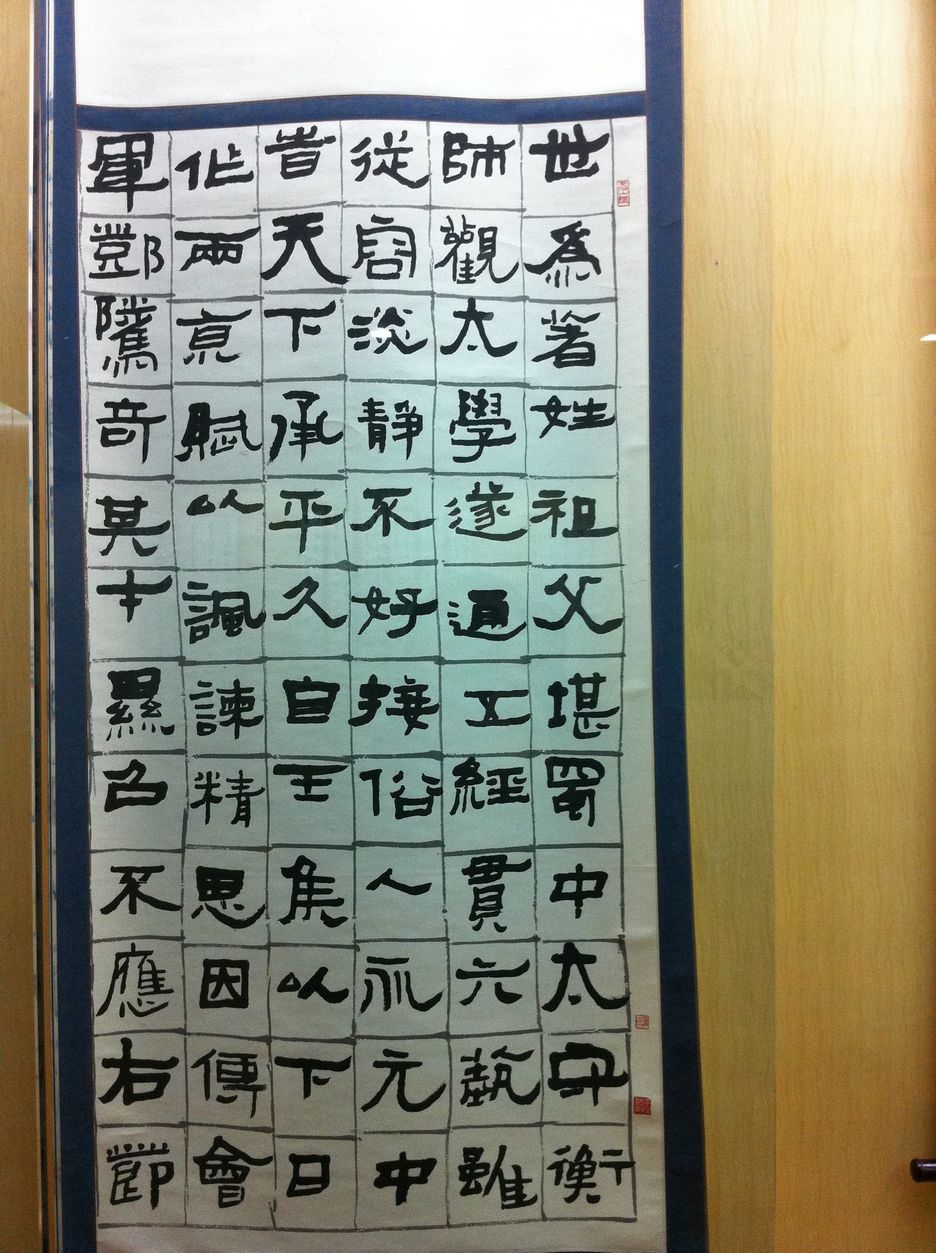 世爲著姓祖父堪蜀中太守衡
師觀太學遂通五經貫六藝雖
從容淡靜不好接俗人永元中
旹天下承平久自王侯以下日
作兩京賦以諷諫精思因傅會
軍鄧騭奇其才累召不應右節